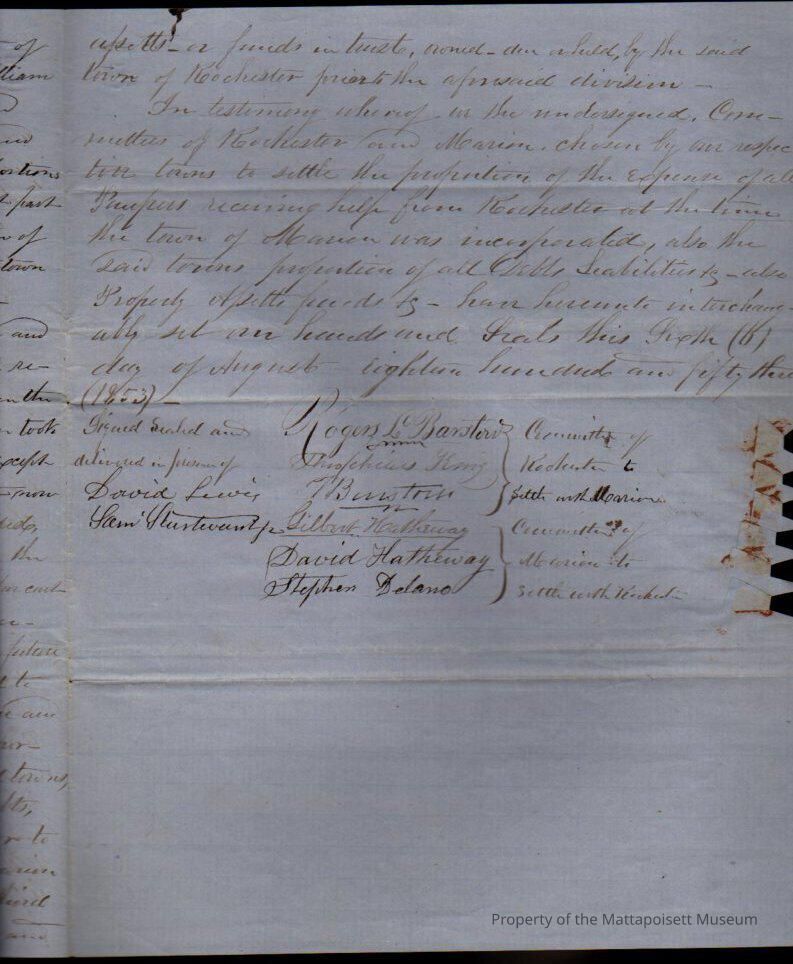 assetts - or funds in trust, owned - due or held, by the said
town of Rochester prior to the aforsaid division -
In testimony whereof we the undersigned, Com-
mittees of Rochester and Marion, chosen by our respec
tive towns to settle the proportion of the expense of all
Paupers receiving help from Rochester at the time
the town of Marion was incorporated, also the
said towns proportion of all Debts Liabilities &c - also
Property Assetts funds &c - have hereunto interchang-
ably set our hands and Seals this Sixth (6)
day of August eighteen hundred and fifty three
(1853) -
Signed Sealed and
delivered in presence of
David Lewis
Saml Sturtevant Jr
Rogers L Barstow
Theophilus King
Barstow
Committee of
Rochester to
Settle with Marion
Gilbert Hathaway
David Hatheway
Stephen Delano
Committee of
Marion to
Settle with Rochester
of
lliam
and
part
of
town
and
re-
took
except
now
the
future
to
and
towns,
to
and
Property of the Mattapoisett Museum